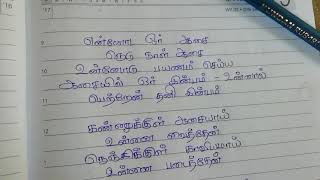 என்னோட ஓர் ஆசை
நெடு நாள் ஆசை
உன்னோடு பயணம் செய்ய
ஆசையில் ஓர் இன்பம் - உன்னால்
பெற்றேன் தனி இன்பம்
கண்ணுக்குள் அசையாய்
உன்னை வைத்தேன்
நெஞ்சிக்குள் காவியமாய்
உன்னை படைத்தேன்